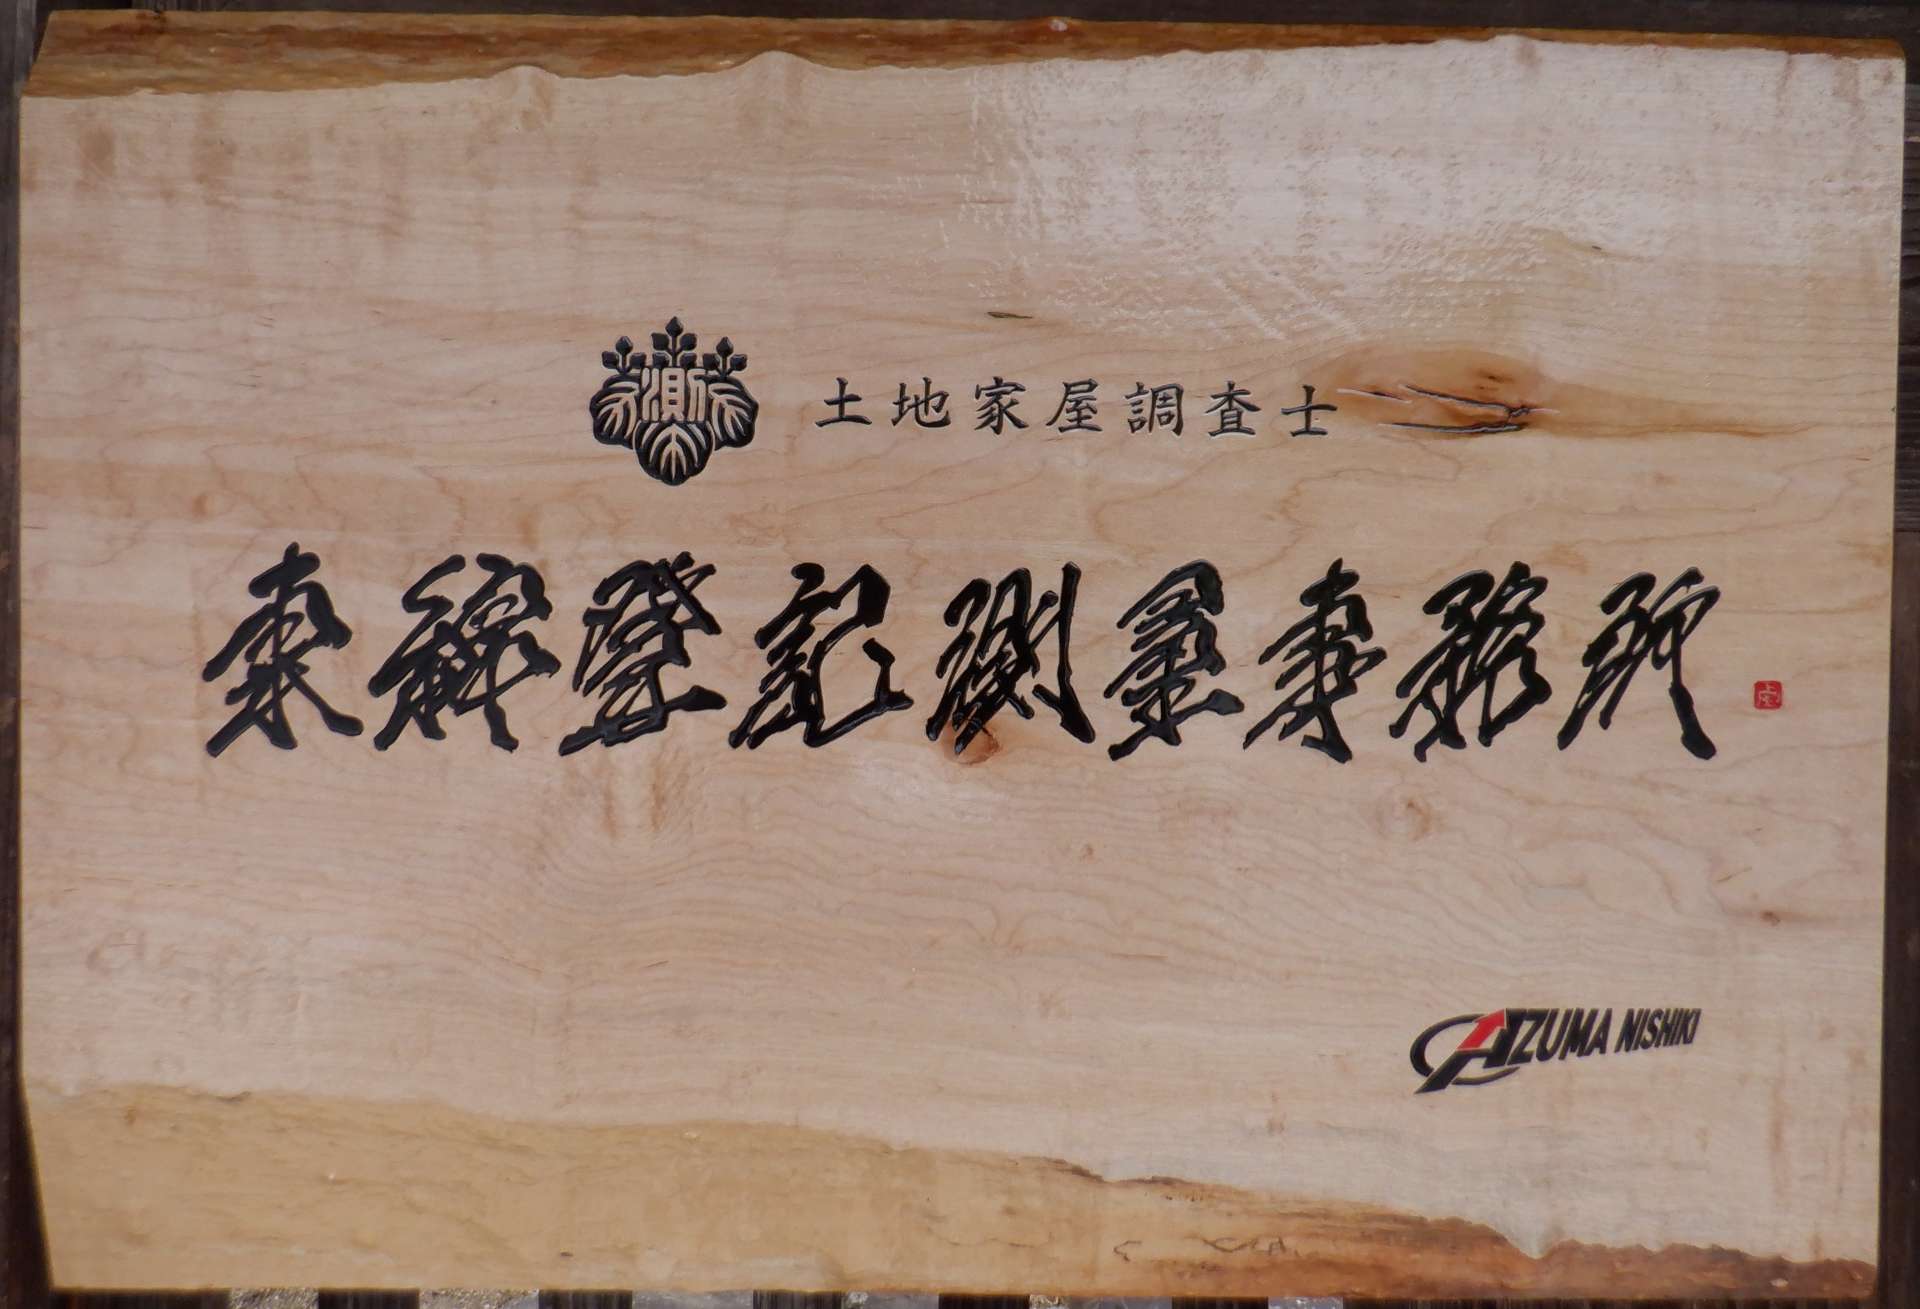 測
土地家屋調査士
東錦登記測量事務所
AZUMA NISHIKI